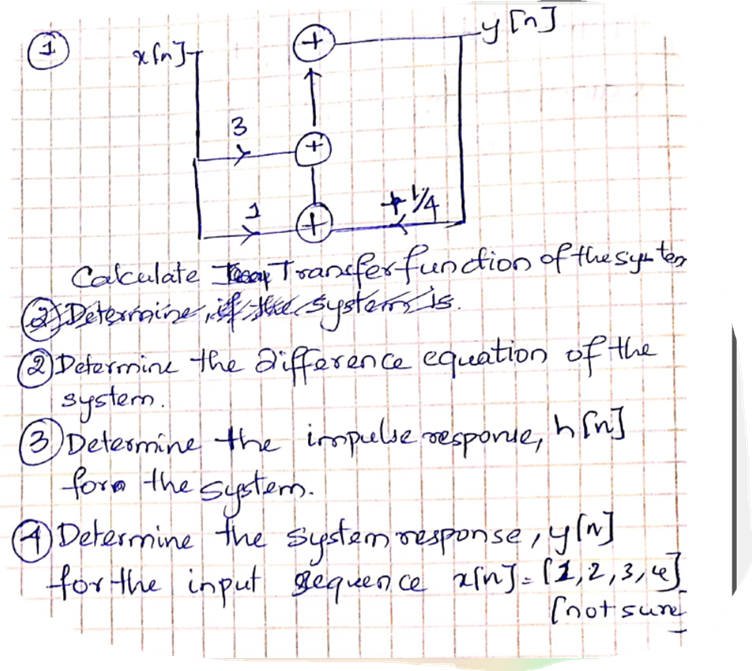 ① x[n] + y[n]
3 +
1 + +1/4
Calculate Transfer function of the system
② Determine, if the system is.
② Determine the difference equation of the
system.
③ Determine the impulse response, h[n]
for the system.
④ Determine the system response, y[n]
for the input sequence x[n] = [1,2,3,4]
[not sure